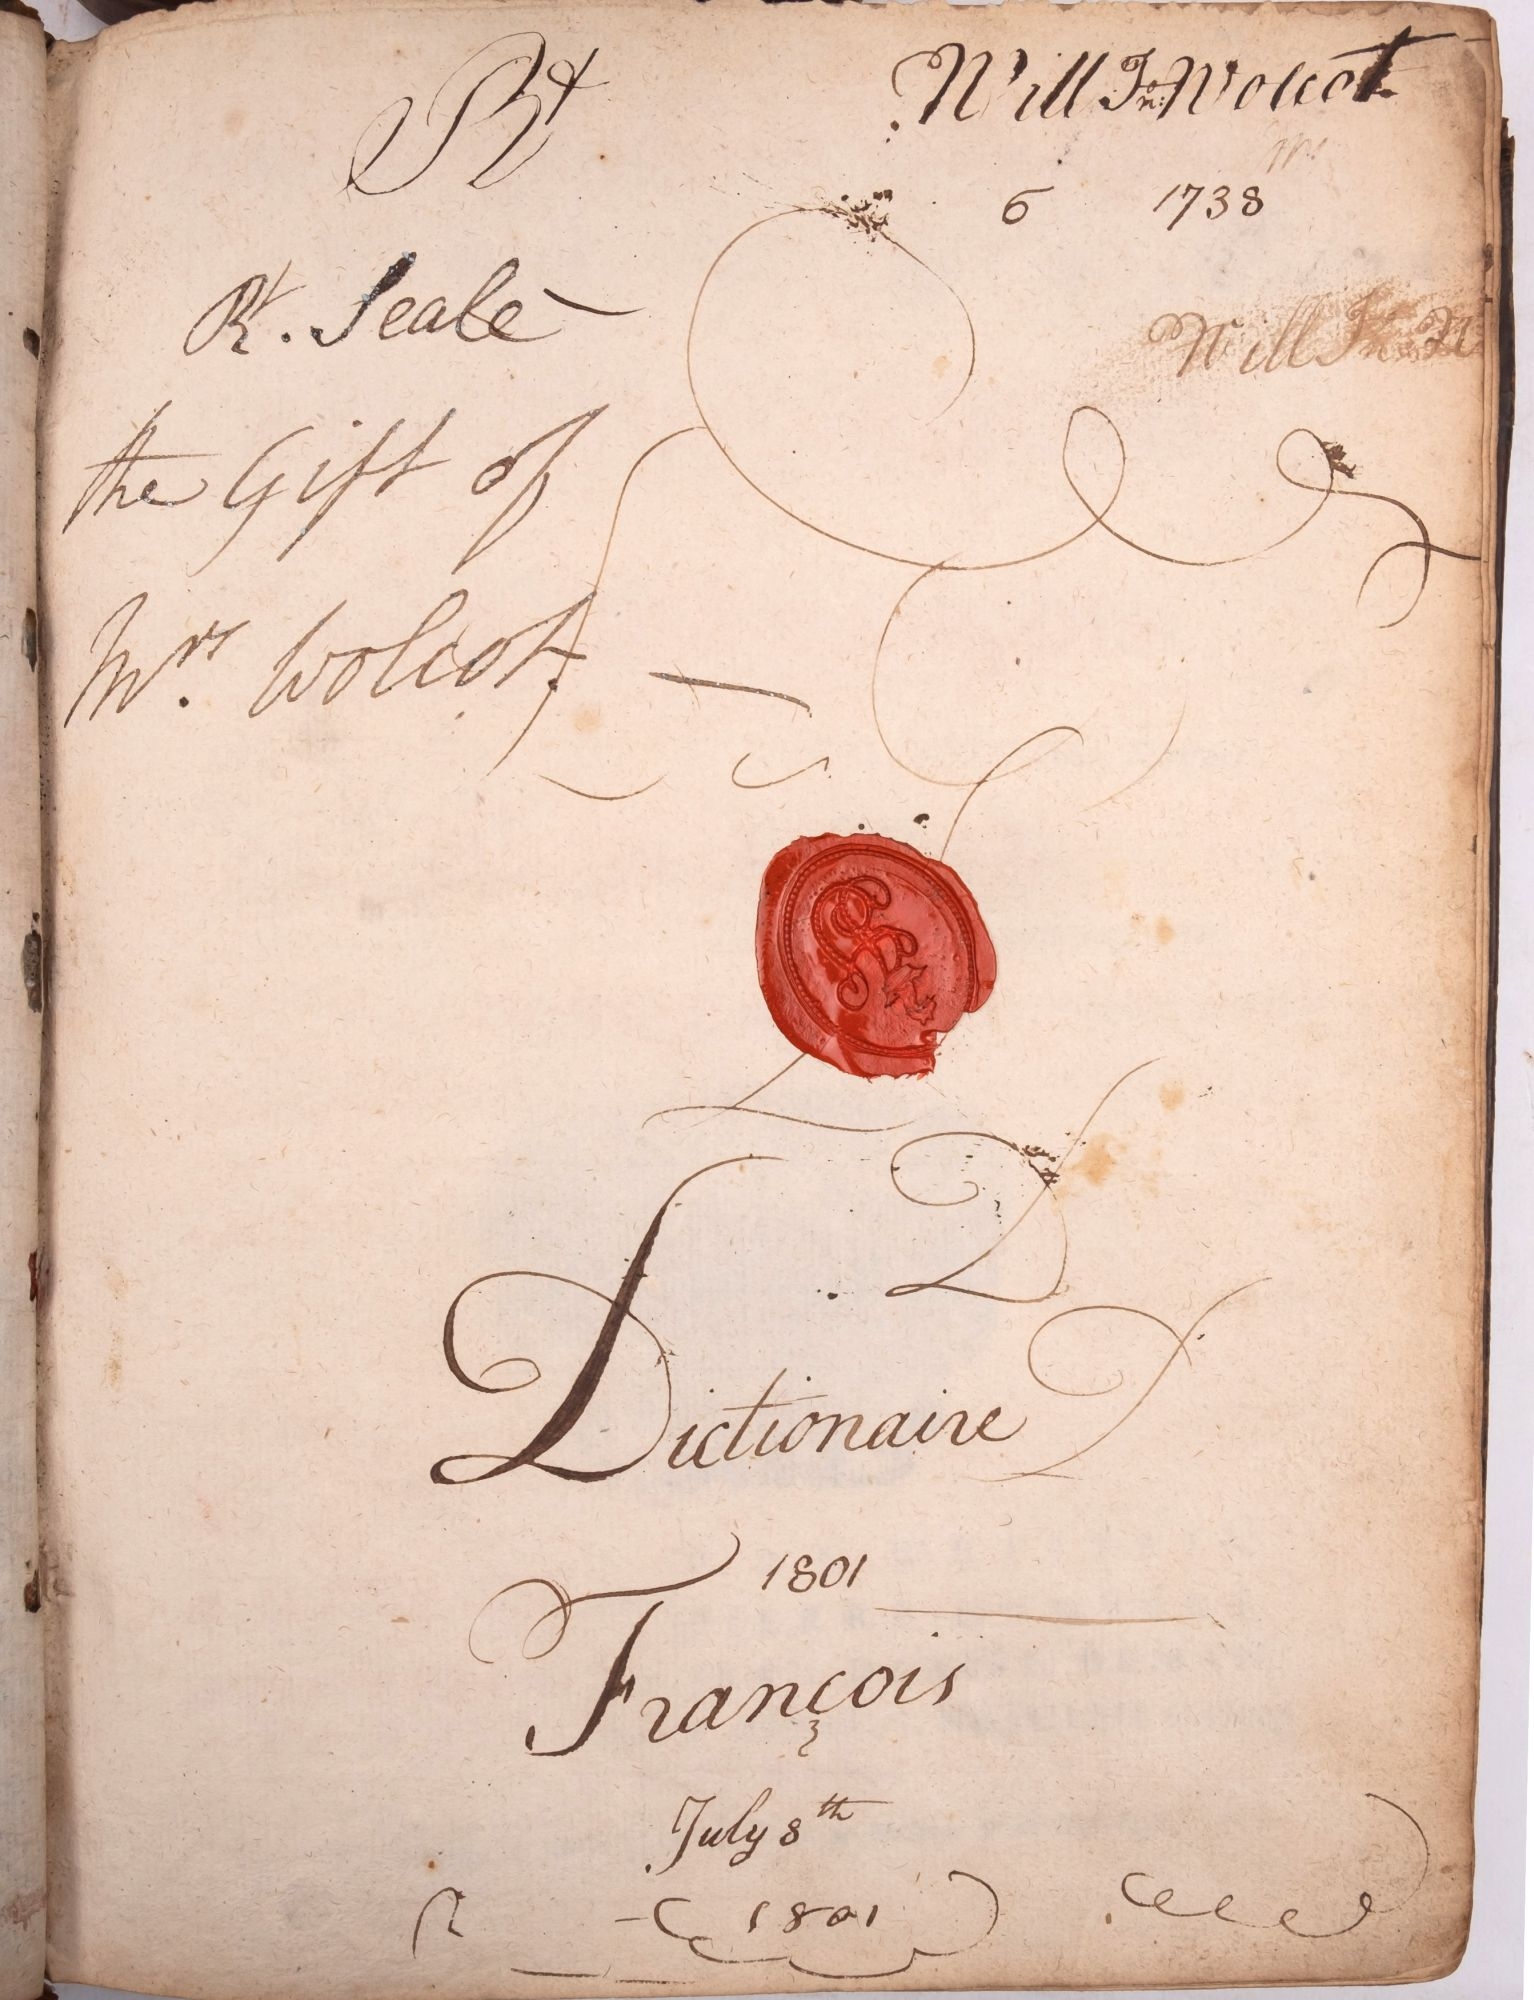 Rt
Will Jn: Wolcot
6 1738
Rt. Seale
Will Jn W
the Gift of
Mrs. Wolcot.
Dictionaire
1801
François
July 8th
R 1801